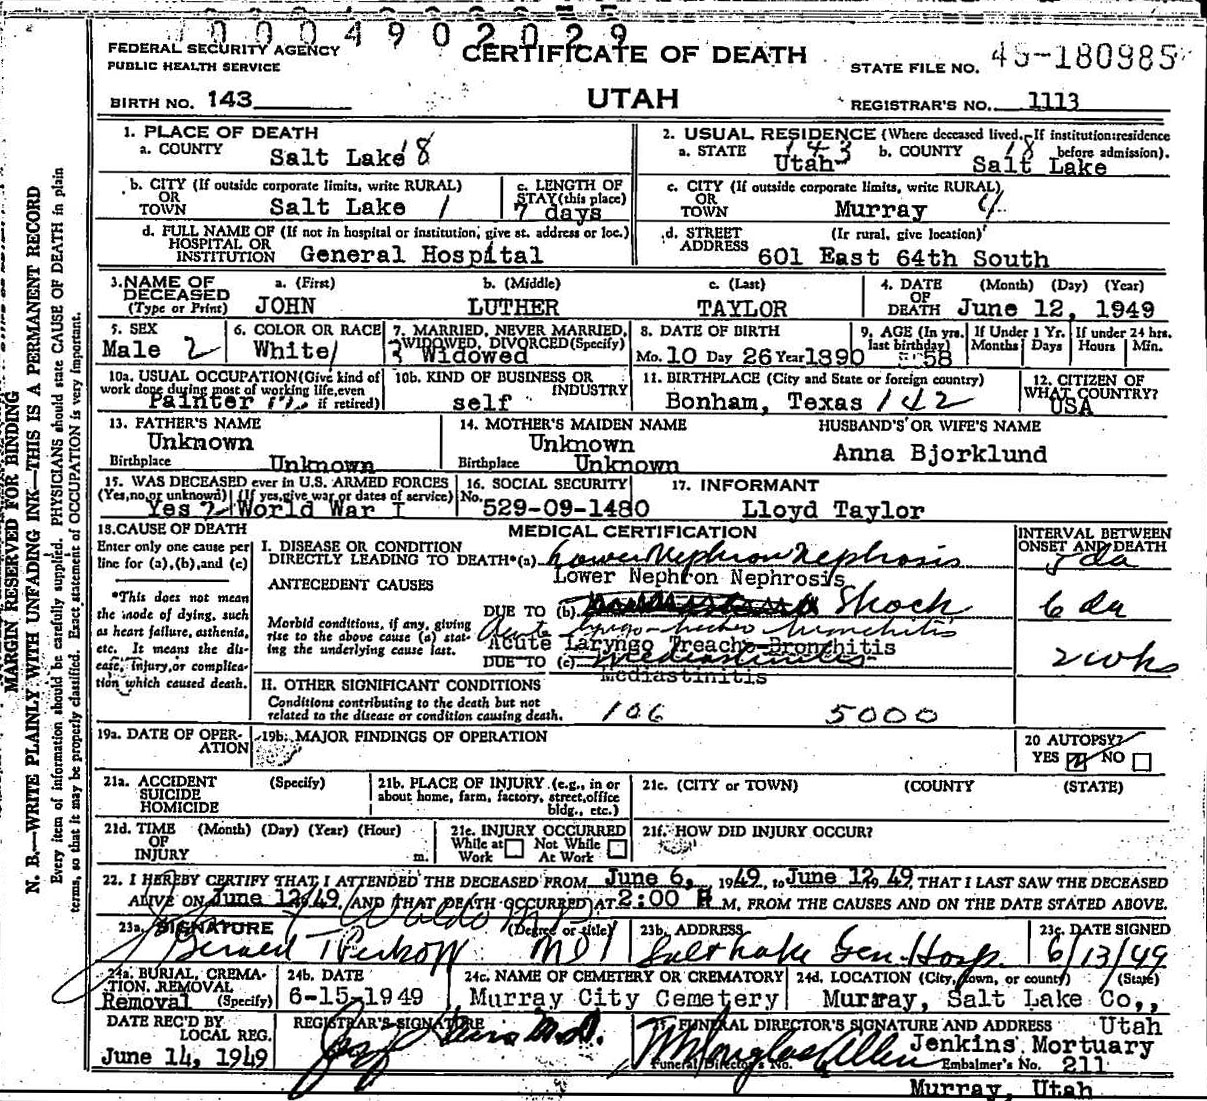 0004902029
FEDERAL SECURITY AGENCY
PUBLIC HEALTH SERVICE
CERTIFICATE OF DEATH
STATE FILE NO. 45-180985
BIRTH NO. 143
UTAH
REGISTRAR'S NO. 1113
1. PLACE OF DEATH
a. COUNTY Salt Lake 18
2. USUAL RESIDENCE (Where deceased lived. If institution: residence before admission).
a. STATE Utah 143 b. COUNTY Salt Lake 18
b. CITY (If outside corporate limits, write RURAL) OR TOWN Salt Lake 1
c. LENGTH OF STAY (this place) 7 days
c. CITY (If outside corporate limits, write RURAL) OR TOWN Murray 4
d. FULL NAME OF (If not in hospital or institution, give st. address or loc.) HOSPITAL OR INSTITUTION General Hospital
d. STREET ADDRESS (If rural, give location) 601 East 64th South
3. NAME OF DECEASED (Type or Print) a. (First) JOHN b. (Middle) LUTHER c. (Last) TAYLOR
4. DATE OF DEATH (Month) (Day) (Year) June 12, 1949
5. SEX Male 2
6. COLOR OR RACE White 1
7. MARRIED, NEVER MARRIED, WIDOWED, DIVORCED (Specify) 3 Widowed
8. DATE OF BIRTH Mo. 10 Day 26 Year 1890
9. AGE (In yrs. last birthday) 58 If Under 1 Yr. Months Days If under 24 hrs. Hours Min.
10a. USUAL OCCUPATION (Give kind of work done during most of working life, even if retired) Painter
10b. KIND OF BUSINESS OR INDUSTRY self
11. BIRTHPLACE (City and State or foreign country) Bonham, Texas 142
12. CITIZEN OF WHAT COUNTRY? USA
13. FATHER'S NAME Unknown
Birthplace Unknown
14. MOTHER'S MAIDEN NAME Unknown
Birthplace Unknown
HUSBAND'S OR WIFE'S NAME Anna Bjorklund
15. WAS DECEASED ever in U.S. ARMED FORCES (Yes, no, or unknown) (If yes, give war or dates of service) Yes 2 World War I
16. SOCIAL SECURITY No. 529-09-1480
17. INFORMANT Lloyd Taylor
18. CAUSE OF DEATH
Enter only one cause per line for (a), (b), and (c)
*This does not mean the mode of dying, such as heart failure, asthenia, etc. It means the disease, injury, or complication which caused death.
MEDICAL CERTIFICATION
INTERVAL BETWEEN ONSET AND DEATH
I. DISEASE OR CONDITION DIRECTLY LEADING TO DEATH*(a) Lower Nephron Nephrosis 5 da
Lower Nephron Nephrosis
ANTECEDENT CAUSES
Morbid conditions, if any, giving rise to the above cause (a) stating the underlying cause last.
DUE TO (b) Shock 6 da
Acute laryngo-tracheo bronchitis
Acute Laryngo Treacho-Bronchitis
DUE TO (c) Mediastinitis 2 wks
Mediastinitis
II. OTHER SIGNIFICANT CONDITIONS
Conditions contributing to the death but not related to the disease or condition causing death.
106 5000
19a. DATE OF OPERATION
19b. MAJOR FINDINGS OF OPERATION
20 AUTOPSY? YES NO
21a. ACCIDENT SUICIDE HOMICIDE (Specify)
21b. PLACE OF INJURY (e.g., in or about home, farm, factory, street, office bldg., etc.)
21c. (CITY or TOWN) (COUNTY) (STATE)
21d. TIME OF INJURY (Month) (Day) (Year) (Hour) m.
21e. INJURY OCCURRED While at Work Not While At Work
21f. HOW DID INJURY OCCUR?
22. I HEREBY CERTIFY THAT I ATTENDED THE DECEASED FROM June 6, 1949, to June 12, 49, THAT I LAST SAW THE DECEASED
ALIVE ON June 12, 49, AND THAT DEATH OCCURRED AT 2:00 P M, FROM THE CAUSES AND ON THE DATE STATED ABOVE.
23a. SIGNATURE (Degree or title) Gerald T Perkoff MD
23b. ADDRESS Salt Lake Gen. Hosp.
23c. DATE SIGNED 6/13/49
24a. BURIAL, CREMATION, REMOVAL (Specify) Removal
24b. DATE 6-15-1949
24c. NAME OF CEMETERY OR CREMATORY Murray City Cemetery
24d. LOCATION (City, town, or county) (State) Murray, Salt Lake Co,, Utah
DATE REC'D BY LOCAL REG. June 14, 1949
REGISTRAR'S SIGNATURE M.D.
25. FUNERAL DIRECTOR'S SIGNATURE AND ADDRESS Jenkins Mortuary
Funeral Director's No. Embalmer's No. 211
Murray, Utah
MARGIN RESERVED FOR BINDING
N. B.—WRITE PLAINLY WITH UNFADING INK—THIS IS A PERMANENT RECORD
Every item of information should be carefully supplied. PHYSICIANS should state CAUSE OF DEATH in plain
terms, so that it may be properly classified. Exact statement of OCCUPATION is very important.